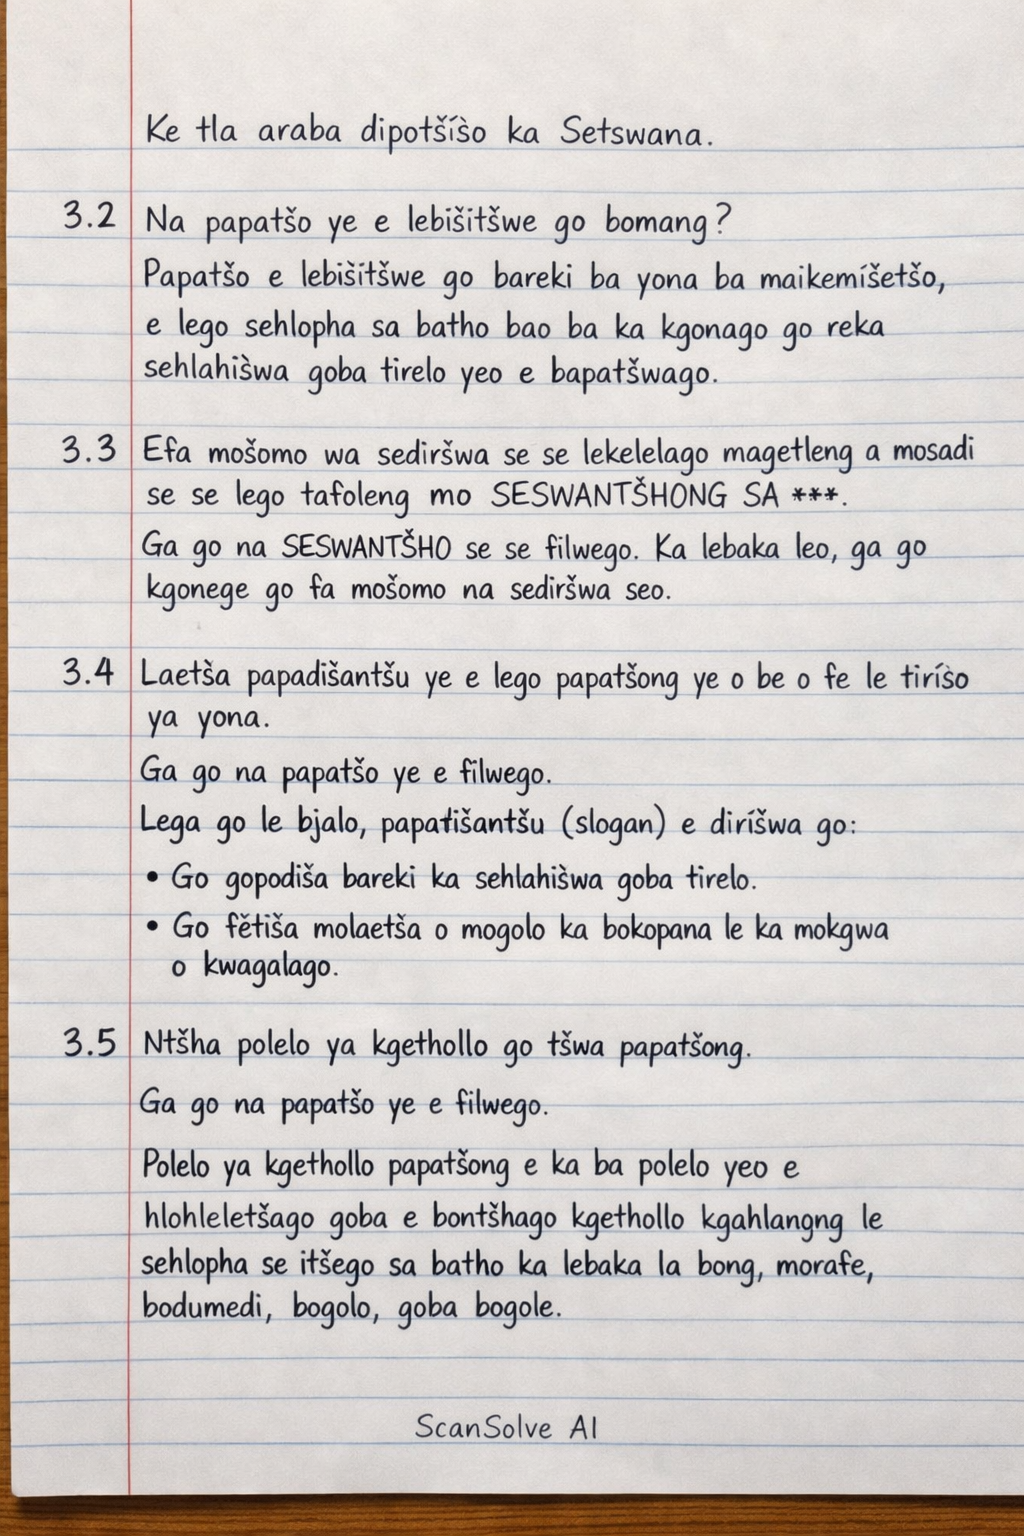 Ke tla araba dipotšíšo ka Setswana.
3.2 Na papatšo ye e lebišitšwe go bomang?
Papatšo e lebišitšwe go bareki ba yona ba maikemíšetšo,
e lego sehlopha sa batho bao ba ka kgonago go reka
sehlahišwa goba tirelo yeo e bapatšwago.
3.3 Efa mošomo wa sediršwa se se lekelelago magetleng a mosadi
se se lego tafoleng mo SESWANTŠHONG SA ***.
Ga go na SESWANTŠHO se se filwego. Ka lebaka leo, ga go
kgonege go fa mošomo na sediršwa seo.
3.4 Laetša papadišantšu ye e lego papatšong ye o be o fe le tiríšo
ya yona.
Ga go na papatšo ye e filwego.
Lega go le bjalo, papatišantšu (slogan) e diríšwa go:
• Go gopodiša bareki ka sehlahišwa goba tirelo.
• Go fětiša molaetša o mogolo ka bokopana le ka mokgwa
o kwagalago.
3.5 Ntšha polelo ya kgethollo go tšwa papatšong.
Ga go na papatšo ye e filwego.
Polelo ya kgethollo papatšong e ka ba polelo yeo e
hlohleletšago goba e bontšhago kgethollo kgahlangng le
sehlopha se itšego sa batho ka lebaka la bong, morafe,
bodumedi, bogolo, goba bogole.
ScanSolve AI